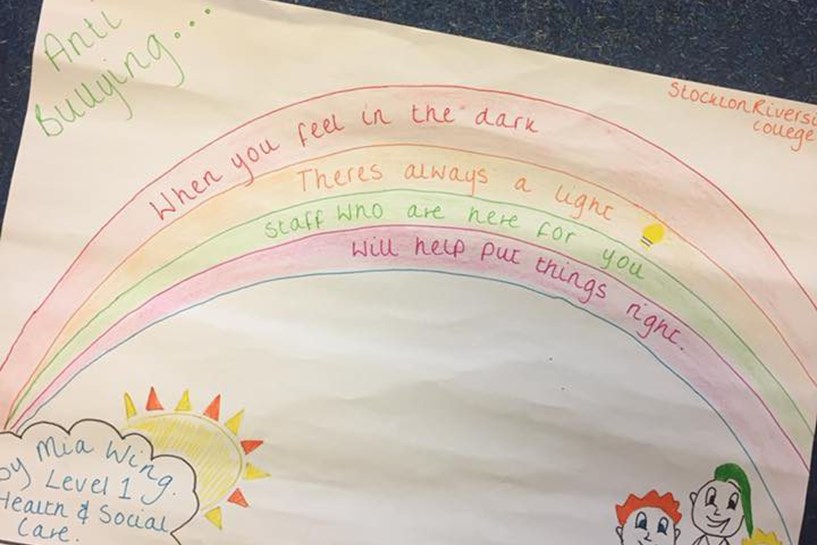 Anti
Bullying...
Stockton Riversi
college
When you feel in the dark
Theres always a light
Staff who are here for you
Will help put things right.
by Mia Wing.
Level 1
Health & Social
Care.